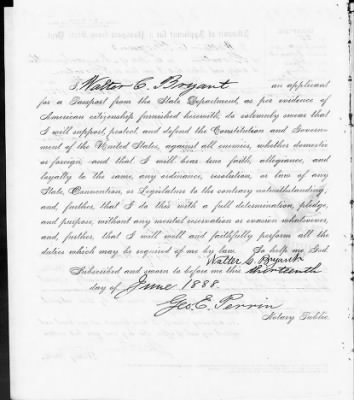 I Walter C. Bryant an applicant
for a Passport from the State Department, as per evidence of
American citizenship furnished herewith, do solemnly swear that
I will support, protect, and defend the Constitution and Govern-
ment of the United States, against all enemies, whether domestic
or foreign and that I will bear true faith, allegiance, and
loyalty to the same, any ordinance, resolution, or law of any
State, Convention, or Legislature to the contrary notwithstanding,
and, further, that I do this with a full determination, pledge,
and purpose, without any mental reservation or evasion whatsoever,
and, further, that I will well and faithfully perform all the
duties which may be required of me by law. So help me God.
Walter C. Bryant
Subscribed and sworn to before me this thirteenth
day of June 1888.
Geo. E. Perrin
Notary Public.